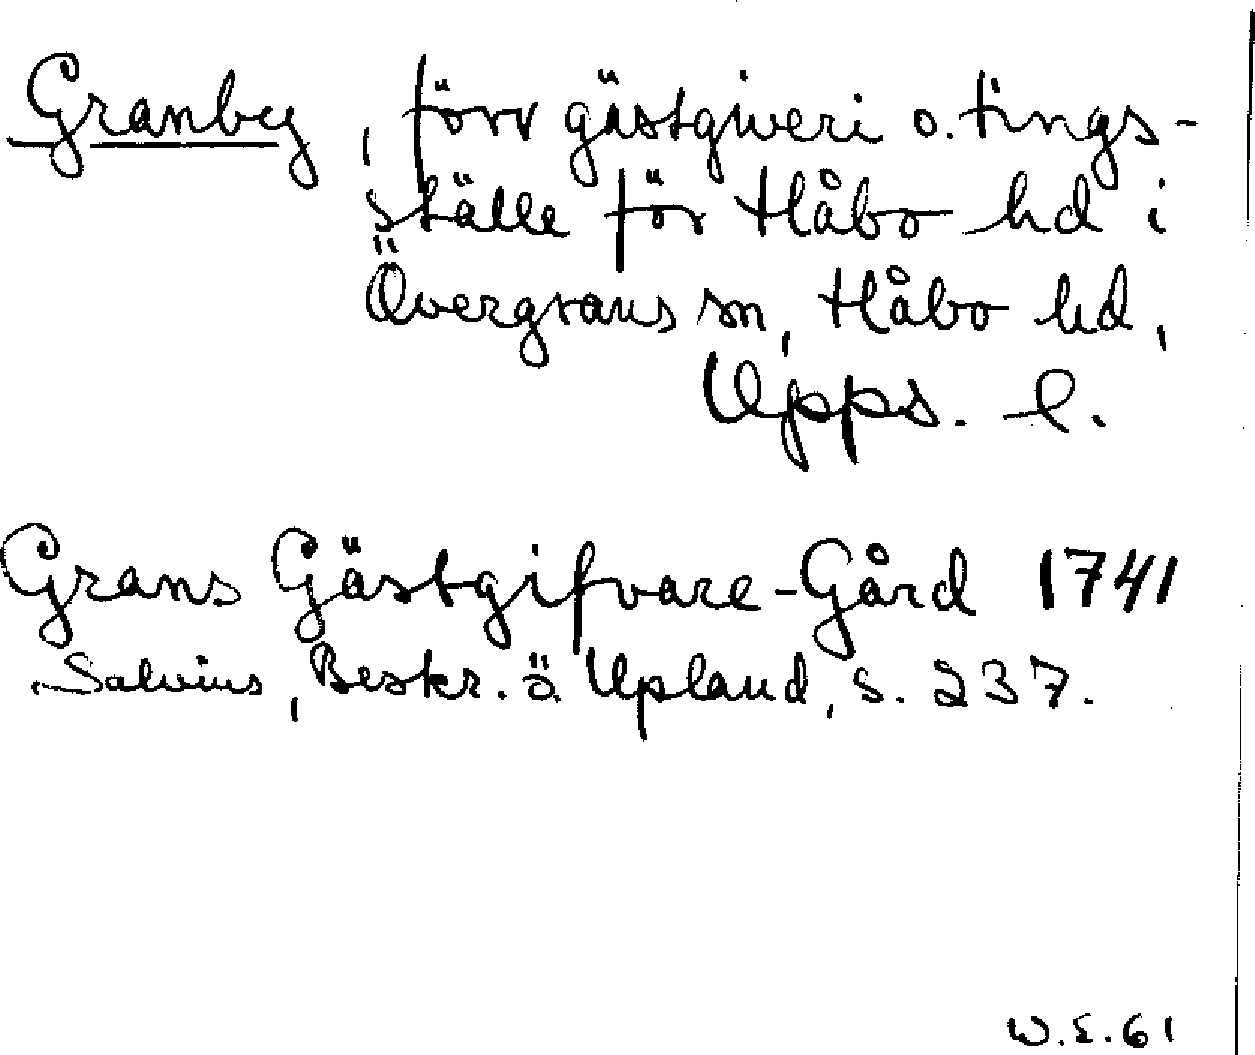 Granby, förr gästgiveri o. tings-
ställe för Håbo hd i
Övergrans sn, Håbo hd,
Upps. l.
Grans Gästgifvare-Gård 1741
Salvius, Beskr. ö. Upland, s. 237.
W.E.61